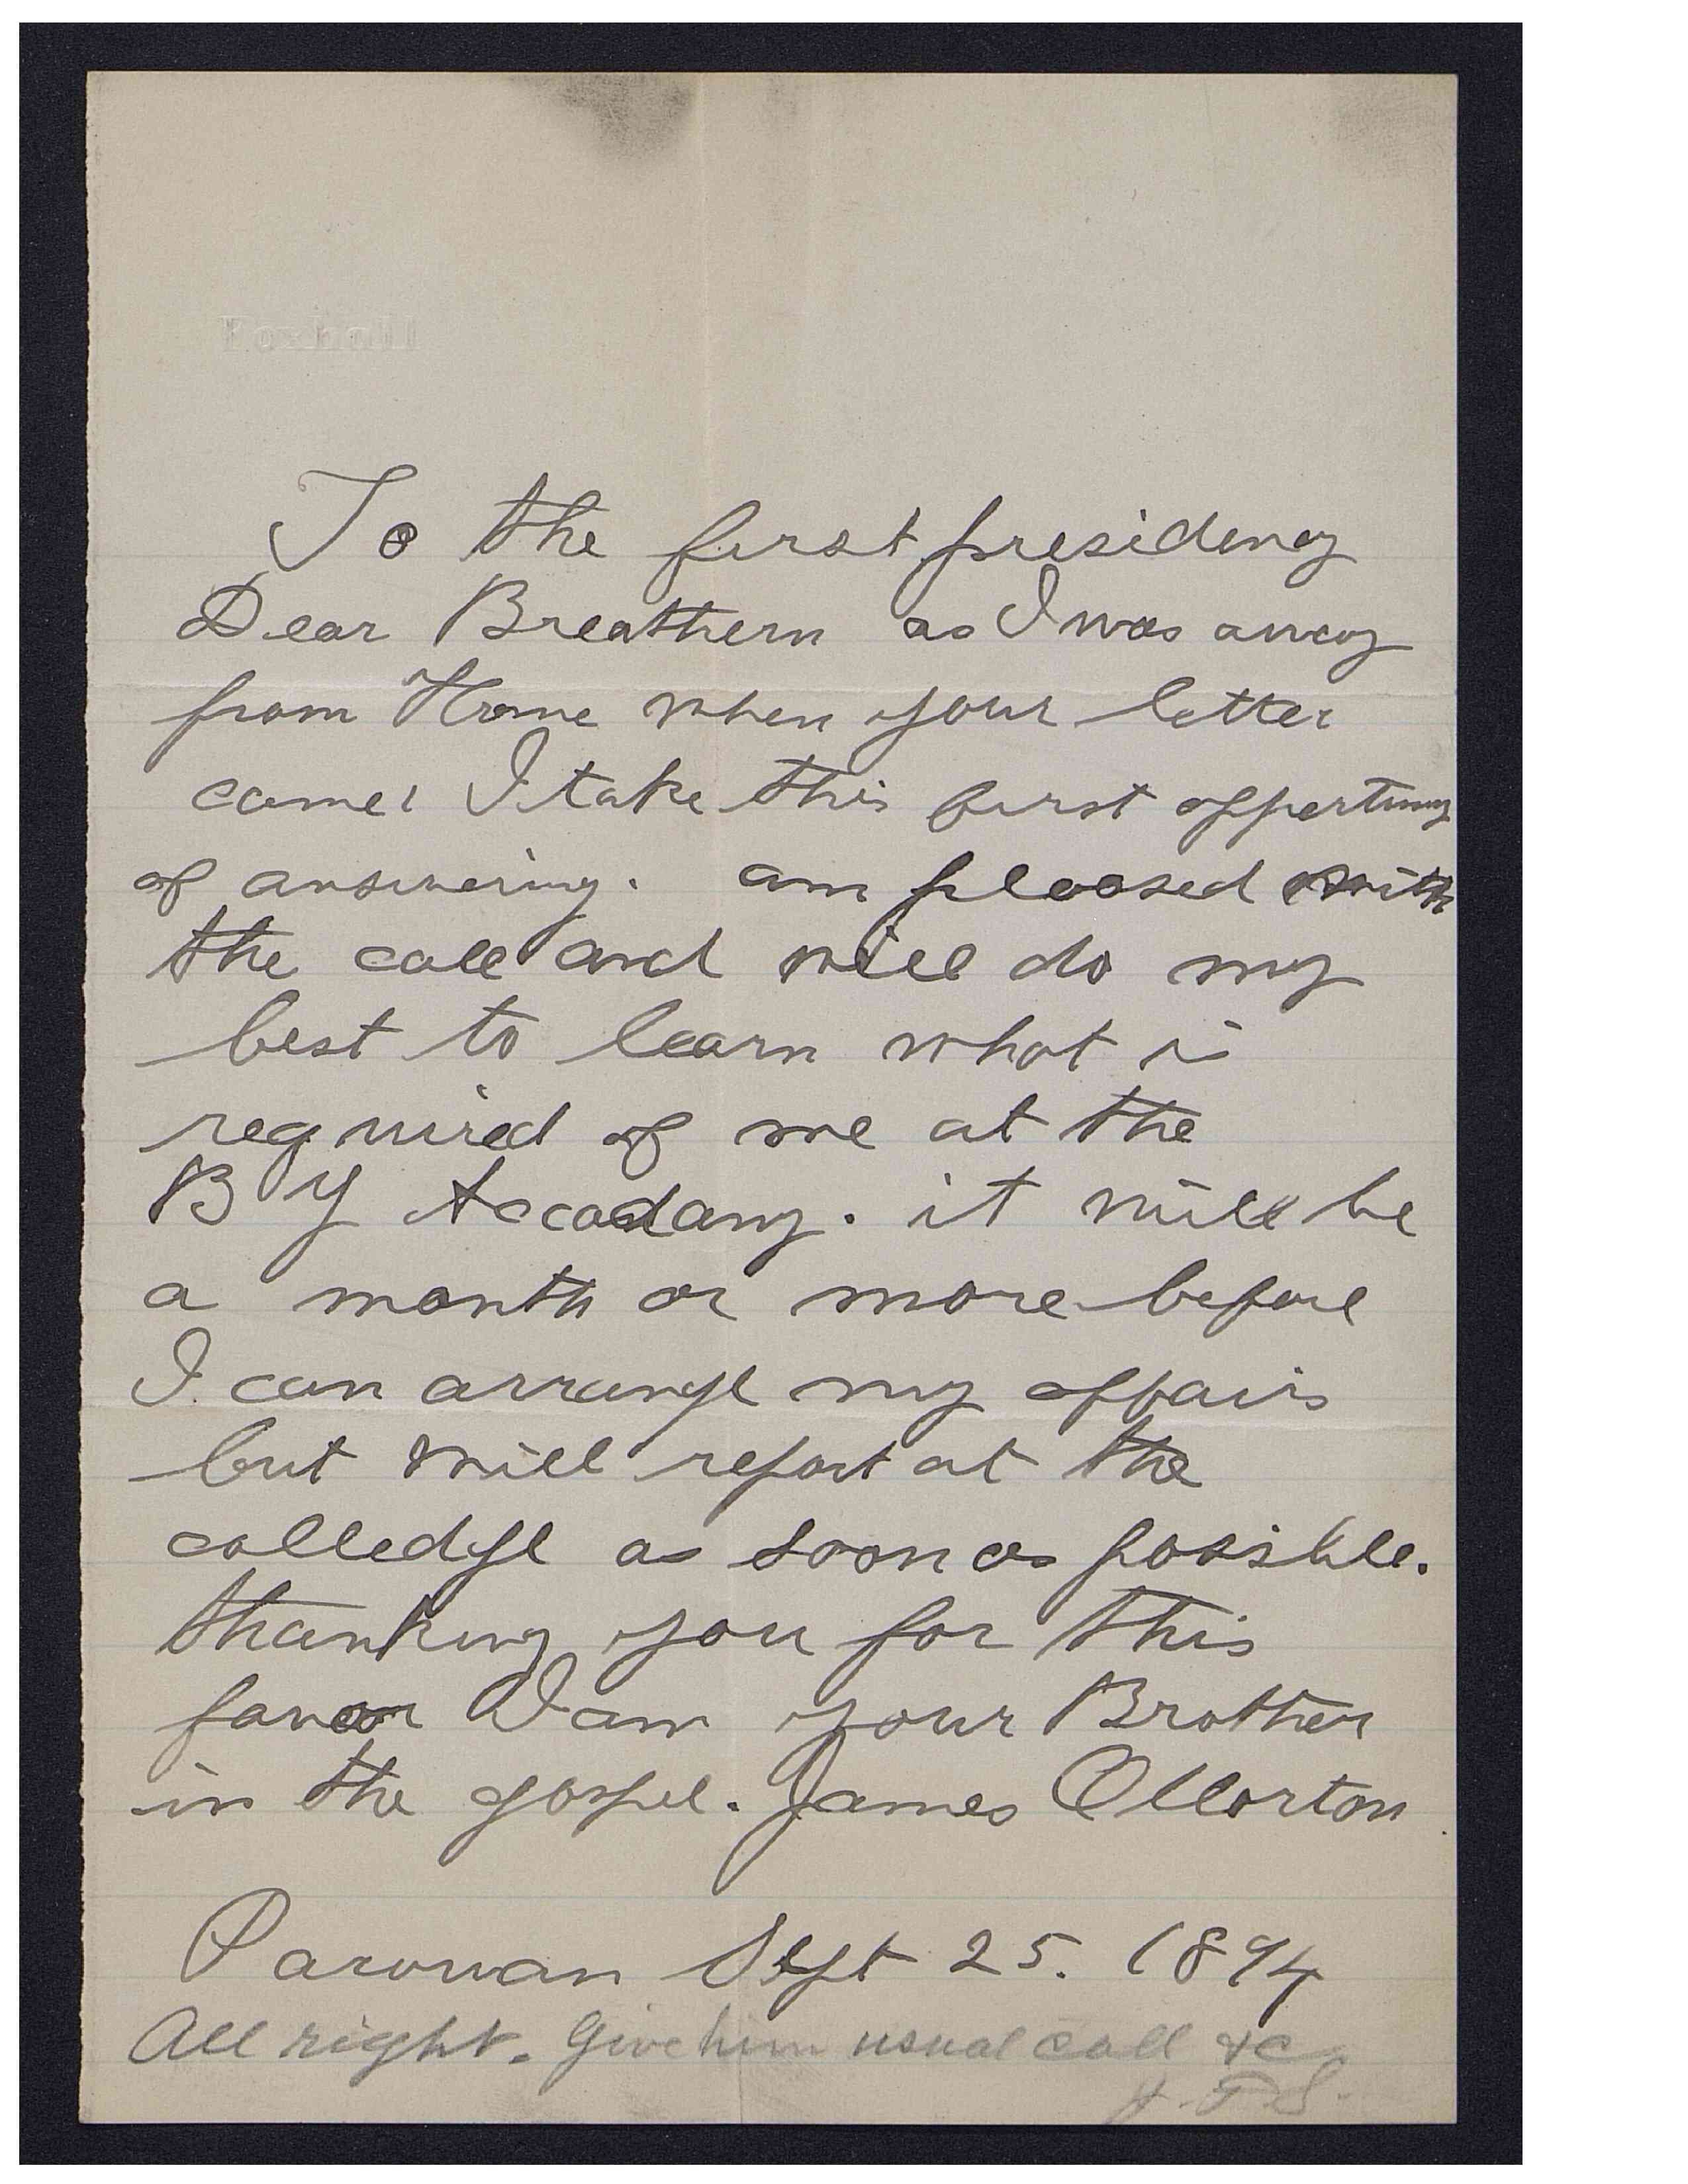 Foxhall
To the first presidency
Dear Breathern as I was away
from Home when your letter
came I take this first oppertuny
of answering. am pleased with
the call and will do my
best to learn what is
required of me at the
B Y Accadamy. it will be
a month or more before
I can arrange my affairs
but will report at the
colledge as soon as possible.
thanking you for this
favor I am your Brother
in the gospel. James Ollorton
Parowan Sept 25. 1894
All right. Give him usual call &c
J. F. S.